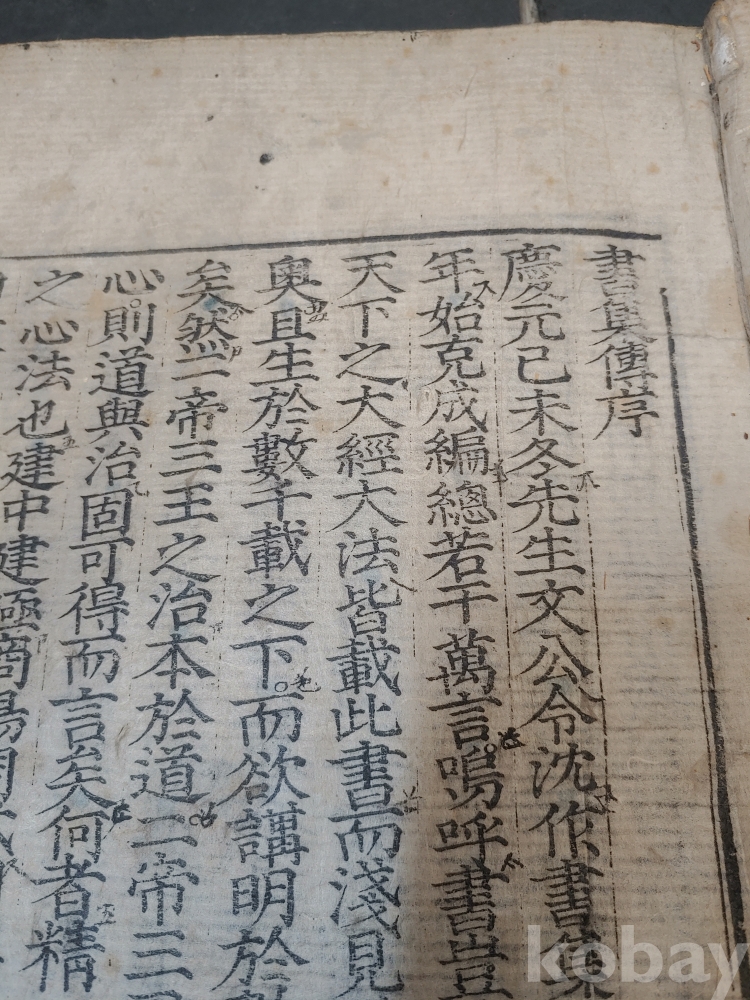 書集傳序
慶元己未冬先生文公令沈作書集
年始克成編總若干萬言嗚呼書豈
天下之大經大法皆載此書而淺見
奧且生於數千載之下而欲講明於
矣然二帝三王之治本於道二帝三
心則道與治固可得而言矣何者精
之心法也建中建極商湯周
kobay